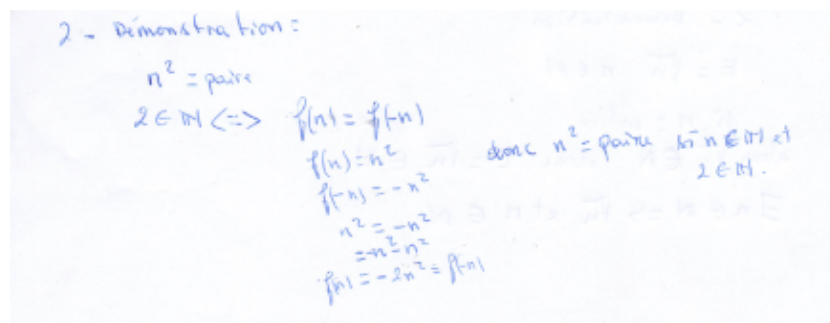 2 - Démonstration :
n² = paire
2 ∈ ℕ <=> f(n) = f(-n)
f(n) = n²
f(-n) = -n²
n² = -n²
= -n² - n²
f(n) = -2n² = f(-n)
donc n² = paire si n ∈ ℕ et
2 ∈ ℕ.